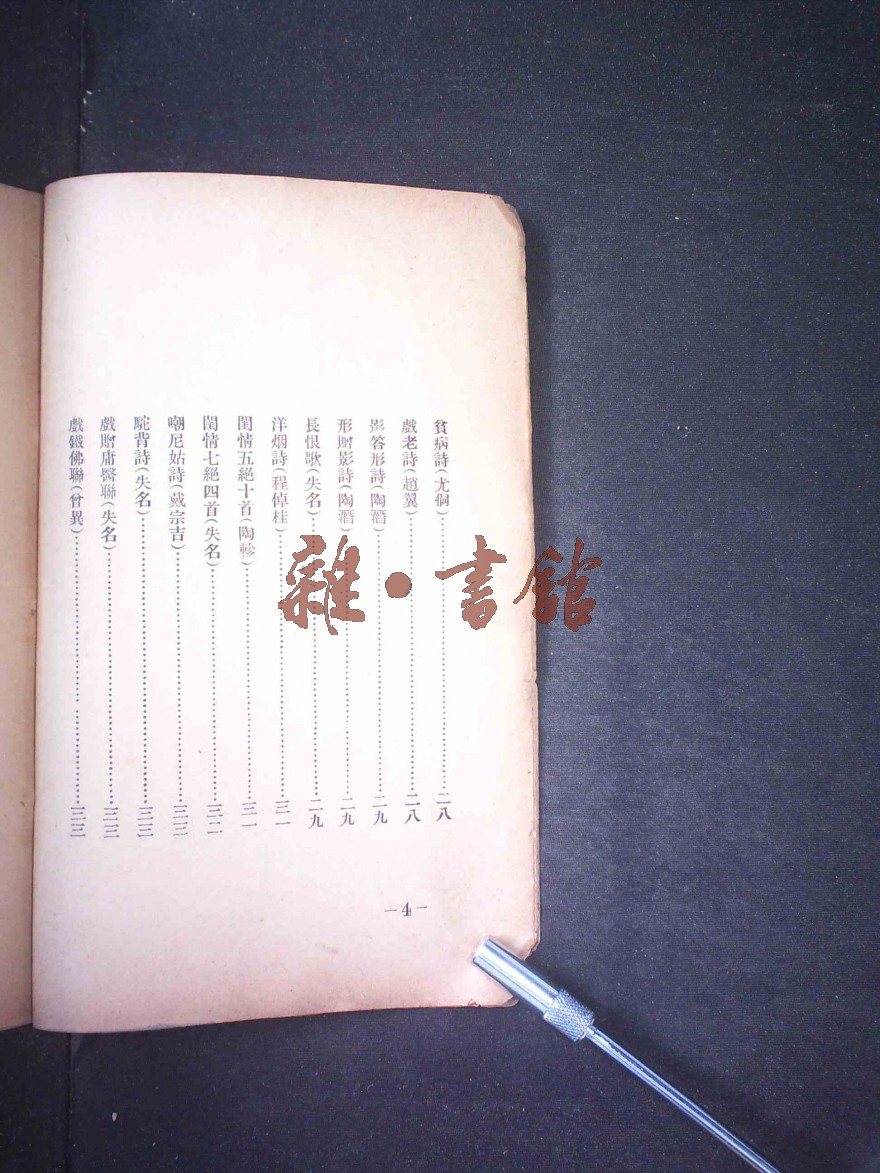 貧病詩(尤侗)……二八
戲老詩(趙翼)……二八
影答形詩(陶潛)……二九
形財影詩(陶潛)……二九
長恨歌(失名)……二九
洋烟詩(程倬桂)……三一
閨情五絕十首(陶軫)……三一
閨情七絕四首(失名)……三二
嘲尼姑詩(戴宗吉)……三三
駝背詩(失名)……三三
戲贈庸醫聯(失名)……三三
戲鐵佛聯(曾異)……三三
—4—
雜·書館